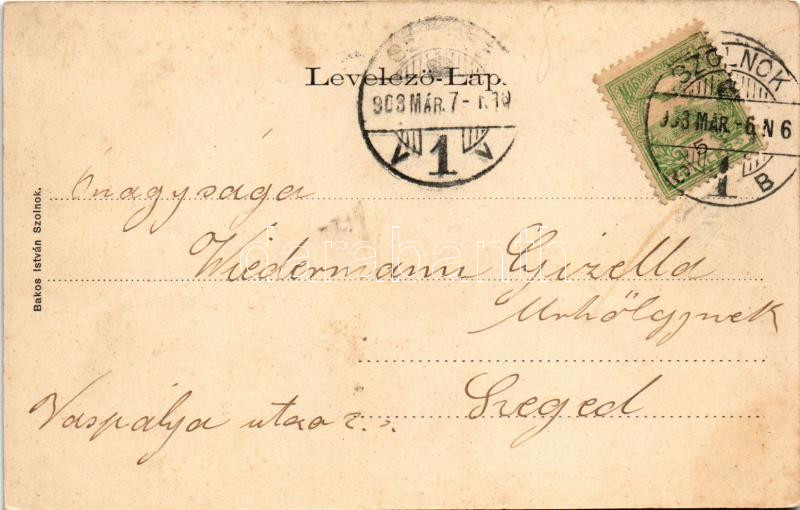 Levelező-Lap.
903 MÁR. 7-
V 1 V
SZOLNOK
903 MÁR. -6 N 6
1 B
Bakos István Szolnok.
Őnagysága
Wiedermann Gizella
Urhölgynek
Szeged
Vaspálya utca
darabanth